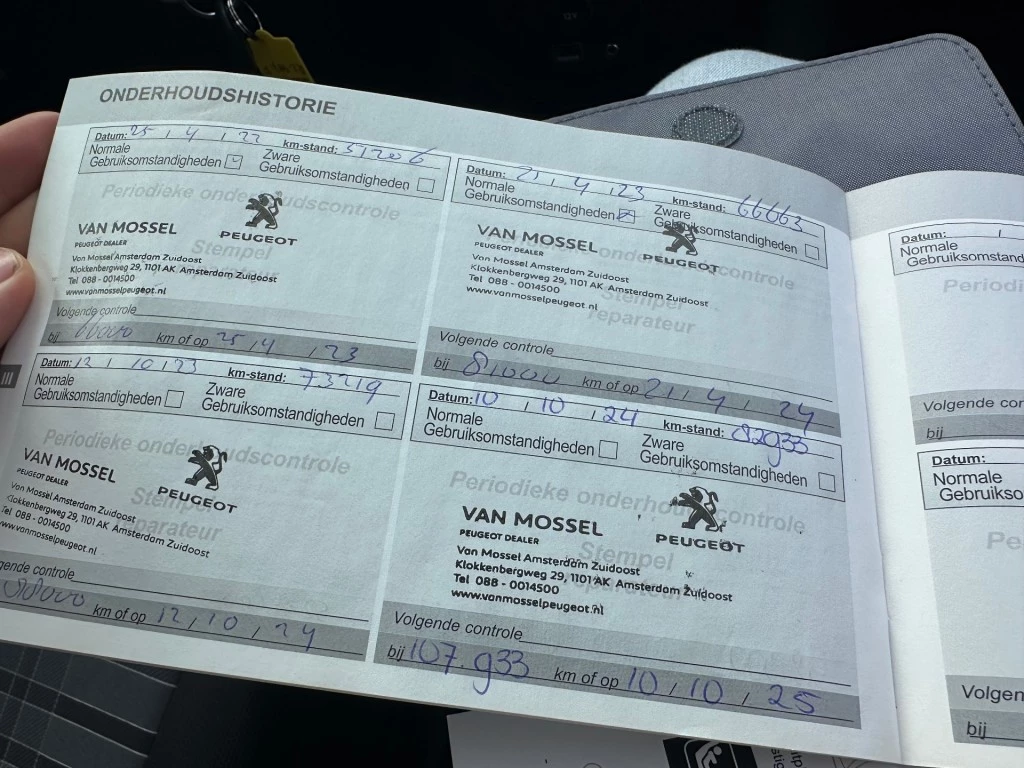 ONDERHOUDSHISTORIE
Datum: 25 / 4 / 22 km-stand: 51206
Normale
Gebruiksomstandigheden
Zware
Gebruiksomstandigheden
Periodieke onderhoudscontrole
Stempel
VAN MOSSEL
PEUGEOT DEALER
PEUGEOT
Van Mossel Amsterdam Zuidoost
Klokkenbergweg 29, 1101 AK Amsterdam Zuidoost
Tel 088 - 0014500
www.vanmosselpeugeot.nl
Volgende controle
bij 66000 km of op 25 / 4 / 23
Datum: 21 / 4 / 23 km-stand: 66663
Normale
Gebruiksomstandigheden
Zware
Gebruiksomstandigheden
Periodieke onderhoudscontrole
Stempel
reparateur
VAN MOSSEL
PEUGEOT DEALER
PEUGEOT
Van Mossel Amsterdam Zuidoost
Klokkenbergweg 29, 1101 AK Amsterdam Zuidoost
Tel 088 - 0014500
www.vanmosselpeugeot.nl
Volgende controle
bij 81000 km of op 21 / 4 / 24
Datum: 12 / 10 / 23 km-stand: 73219
Normale
Gebruiksomstandigheden
Zware
Gebruiksomstandigheden
Periodieke onderhoudscontrole
Stempel
reparateur
VAN MOSSEL
PEUGEOT DEALER
PEUGEOT
Van Mossel Amsterdam Zuidoost
Klokkenbergweg 29, 1101 AK Amsterdam Zuidoost
Tel 088 - 0014500
www.vanmosselpeugeot.nl
gende controle
88000 km of op 12 / 10 / 24
Datum: 10 / 10 / 24 km-stand: 82933
Normale
Gebruiksomstandigheden
Zware
Gebruiksomstandigheden
Periodieke onderhoudscontrole
Stempel
VAN MOSSEL
PEUGEOT DEALER
PEUGEOT
Van Mossel Amsterdam Zuidoost
Klokkenbergweg 29, 1101 AK Amsterdam Zuidoost
Tel 088 - 0014500
www.vanmosselpeugeot.nl
Volgende controle
bij 107.933 km of op 10 / 10 / 25
III
Datum: /
Normale
Gebruiksomstand
Periodi
Volgende con
bij
Datum:
Normale
Gebruikso
Pe
Volgen
bij
12V